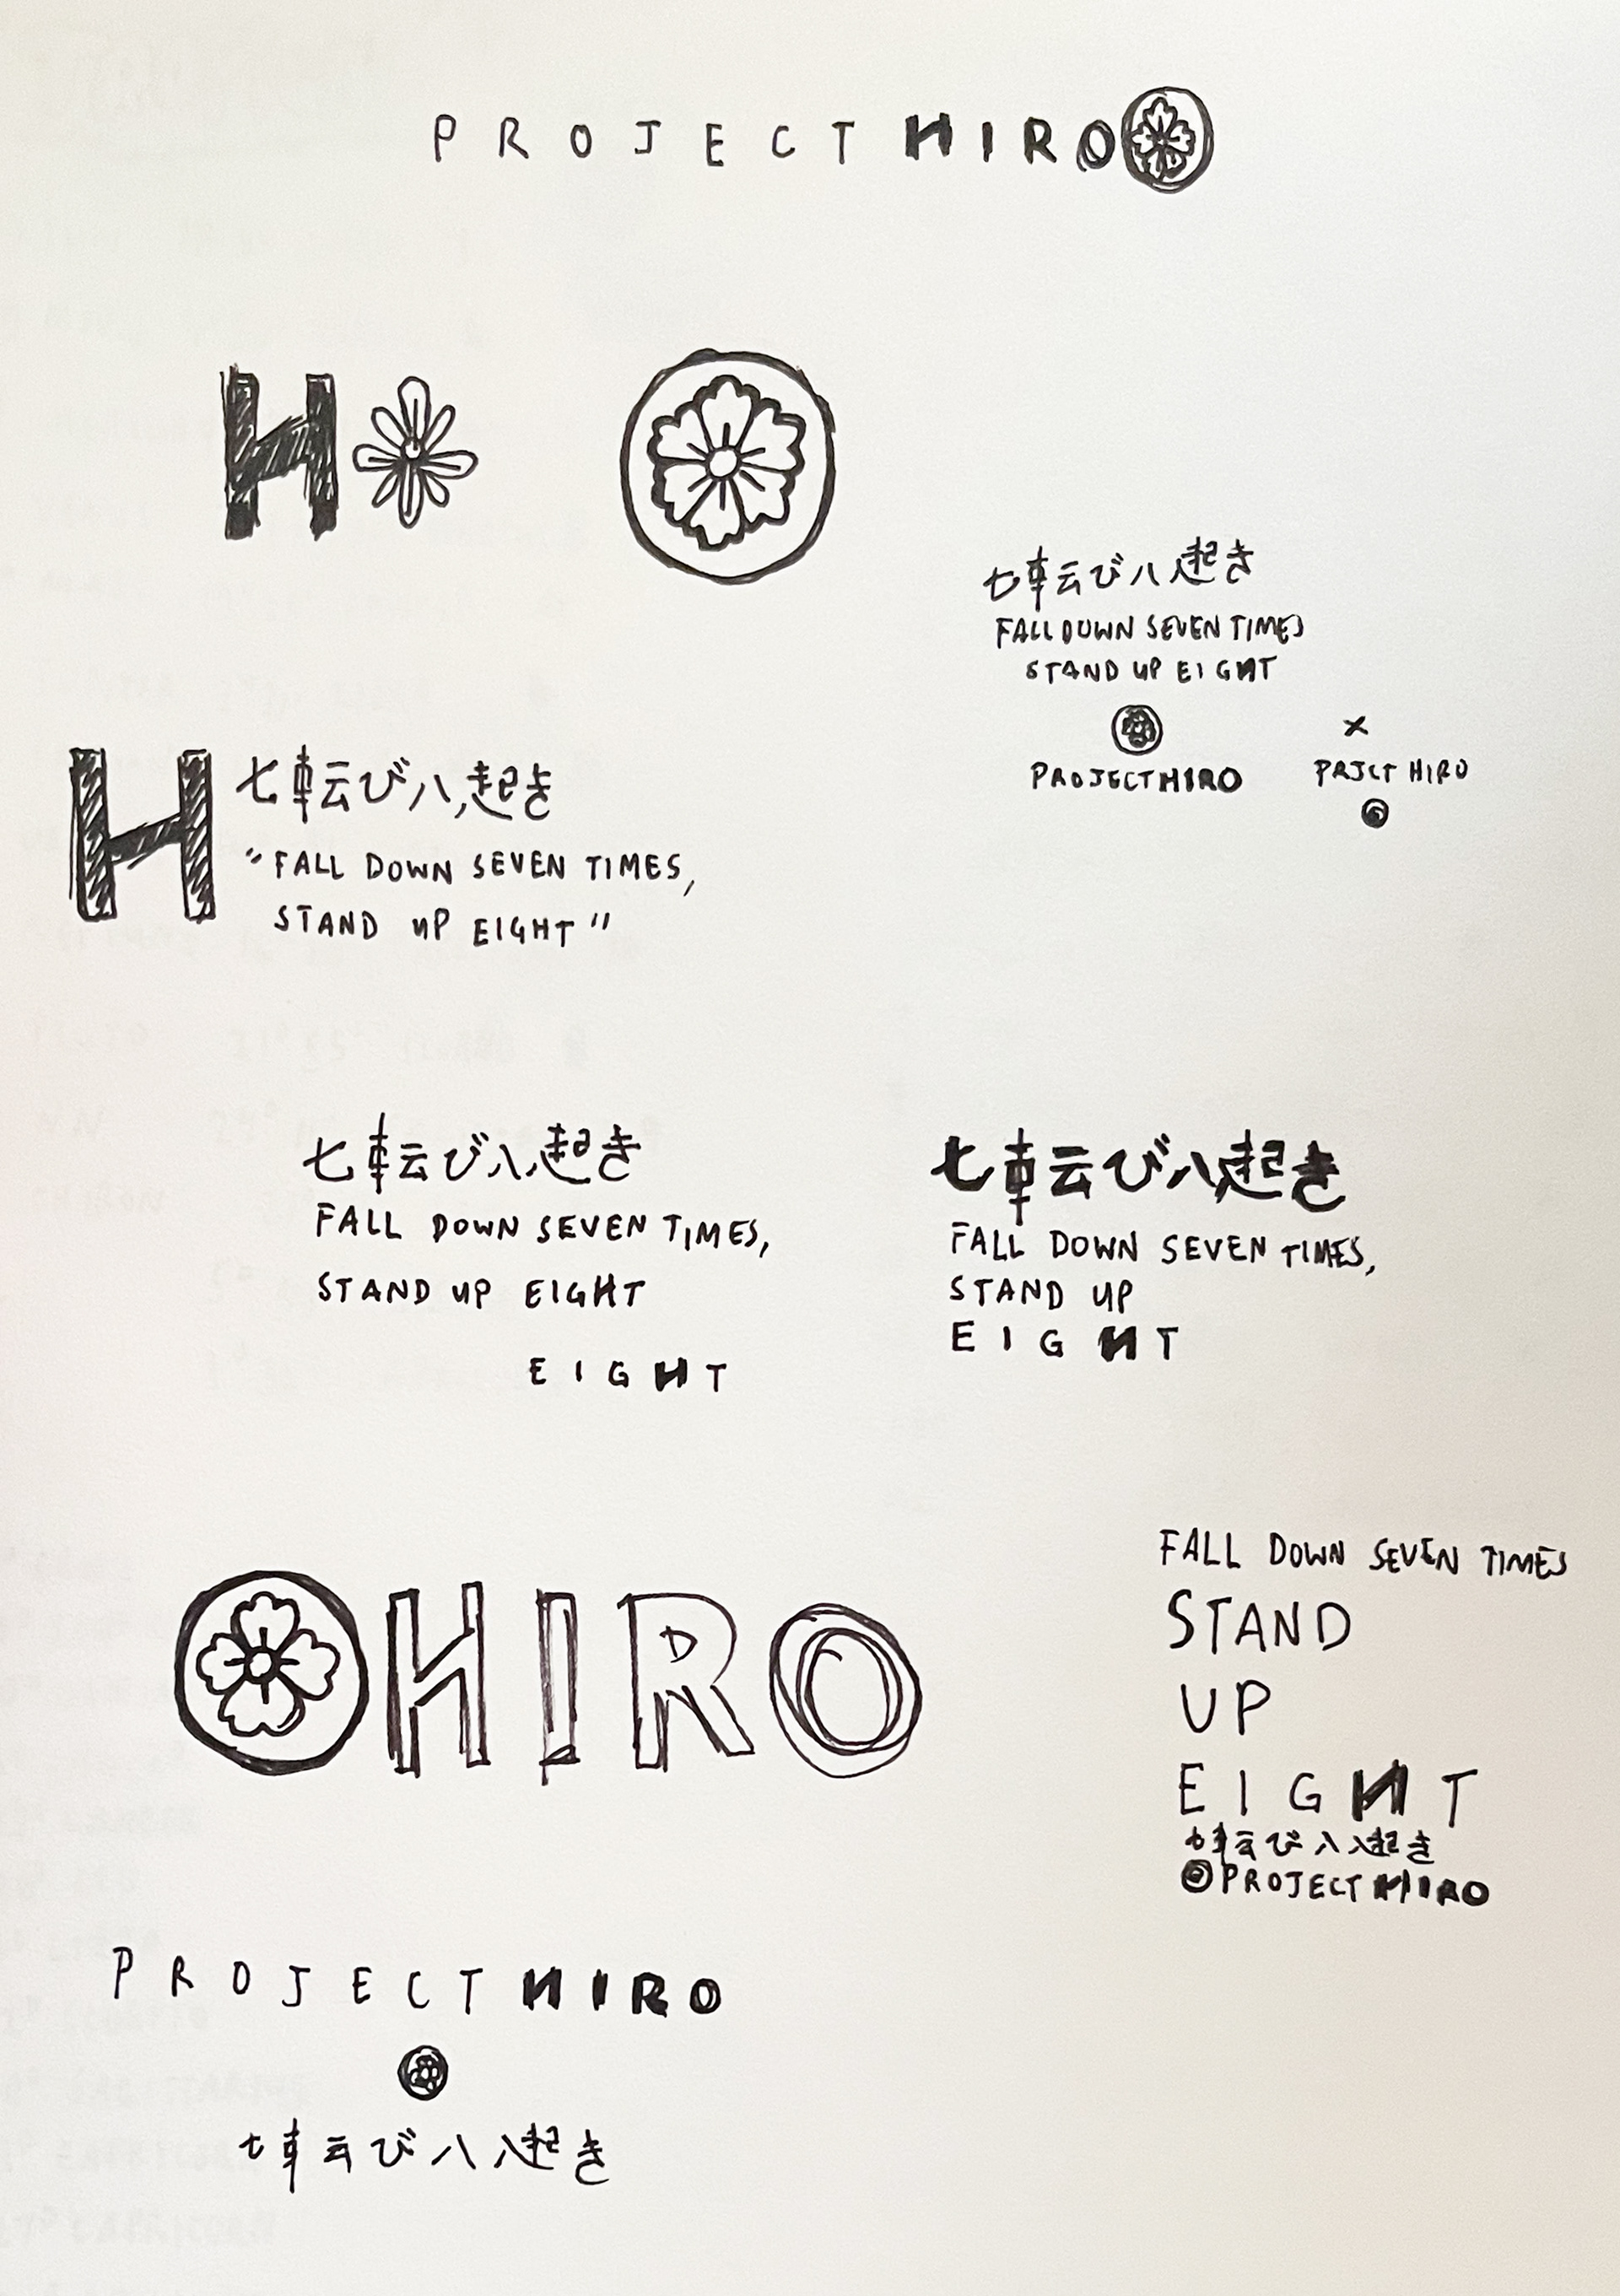 PROJECT HIRO
H
七転び八起き
FALL DOWN SEVEN TIMES
STAND UP EIGHT
PROJECT HIRO
x
PRJCT HIRO
H
七転び八起き
"FALL DOWN SEVEN TIMES,
STAND UP EIGHT"
七転び八起き
FALL DOWN SEVEN TIMES,
STAND UP EIGHT
EIGHT
七転び八起き
FALL DOWN SEVEN TIMES,
STAND UP
EIGHT
HIRO
FALL DOWN SEVEN TIMES
STAND
UP
EIGHT
七転び八起き
PROJECT HIRO
PROJECT HIRO
七転び八起き